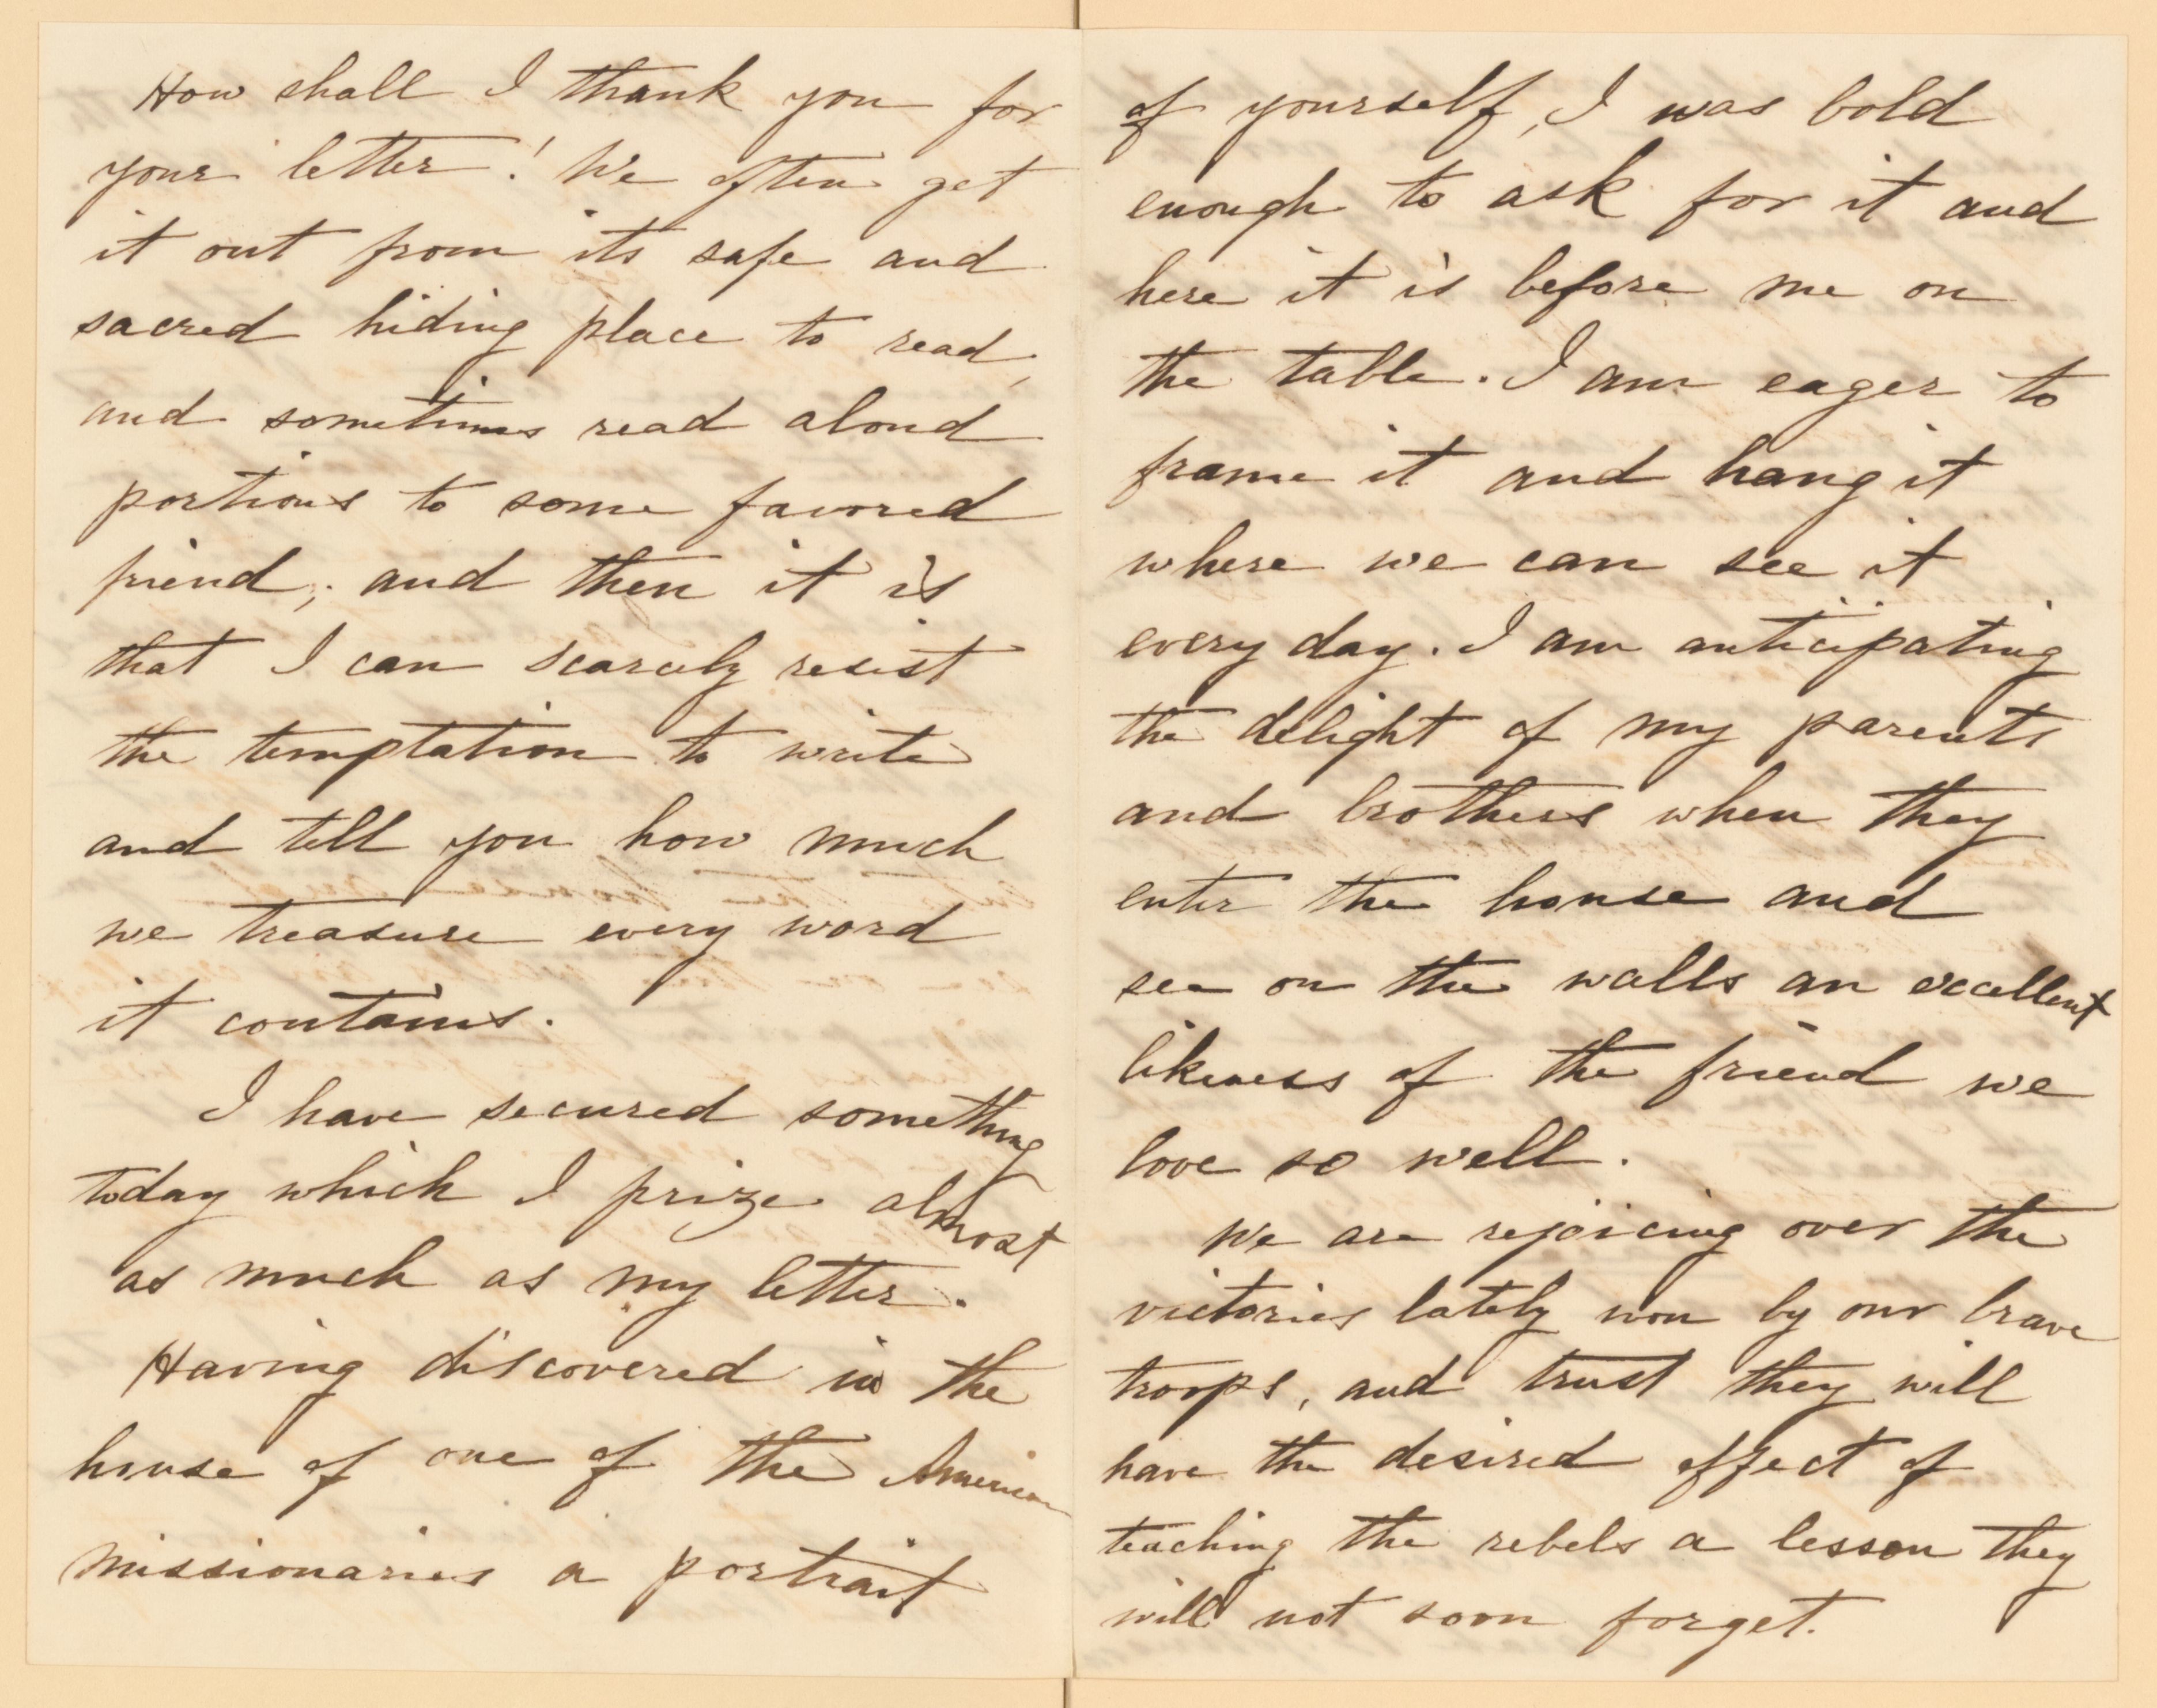 How shall I thank you for
your letter! We often get
it out from its safe and
sacred hiding place to read,
and sometimes read aloud
portions to some favored
friend; and then it is
that I can scarcely resist
the temptation to write
and tell you how much
we treasure every word
it contains.
I have secured something
today which I prize almost
as much as my letter.
Having discovered in the
house of one of the American
missionaries a portrait
of yourself, I was bold
enough to ask for it and
here it is before me on
the table. I am eager to
frame it and hang it
where we can see it
every day. I am anticipating
the delight of my parents
and brothers when they
enter the house and
see on the walls an excellent
likeness of the friend we
love so well.
We are rejoicing over the
victories lately won by our brave
troops, and trust they will
have the desired effect of
teaching the rebels a lesson they
will not soon forget.